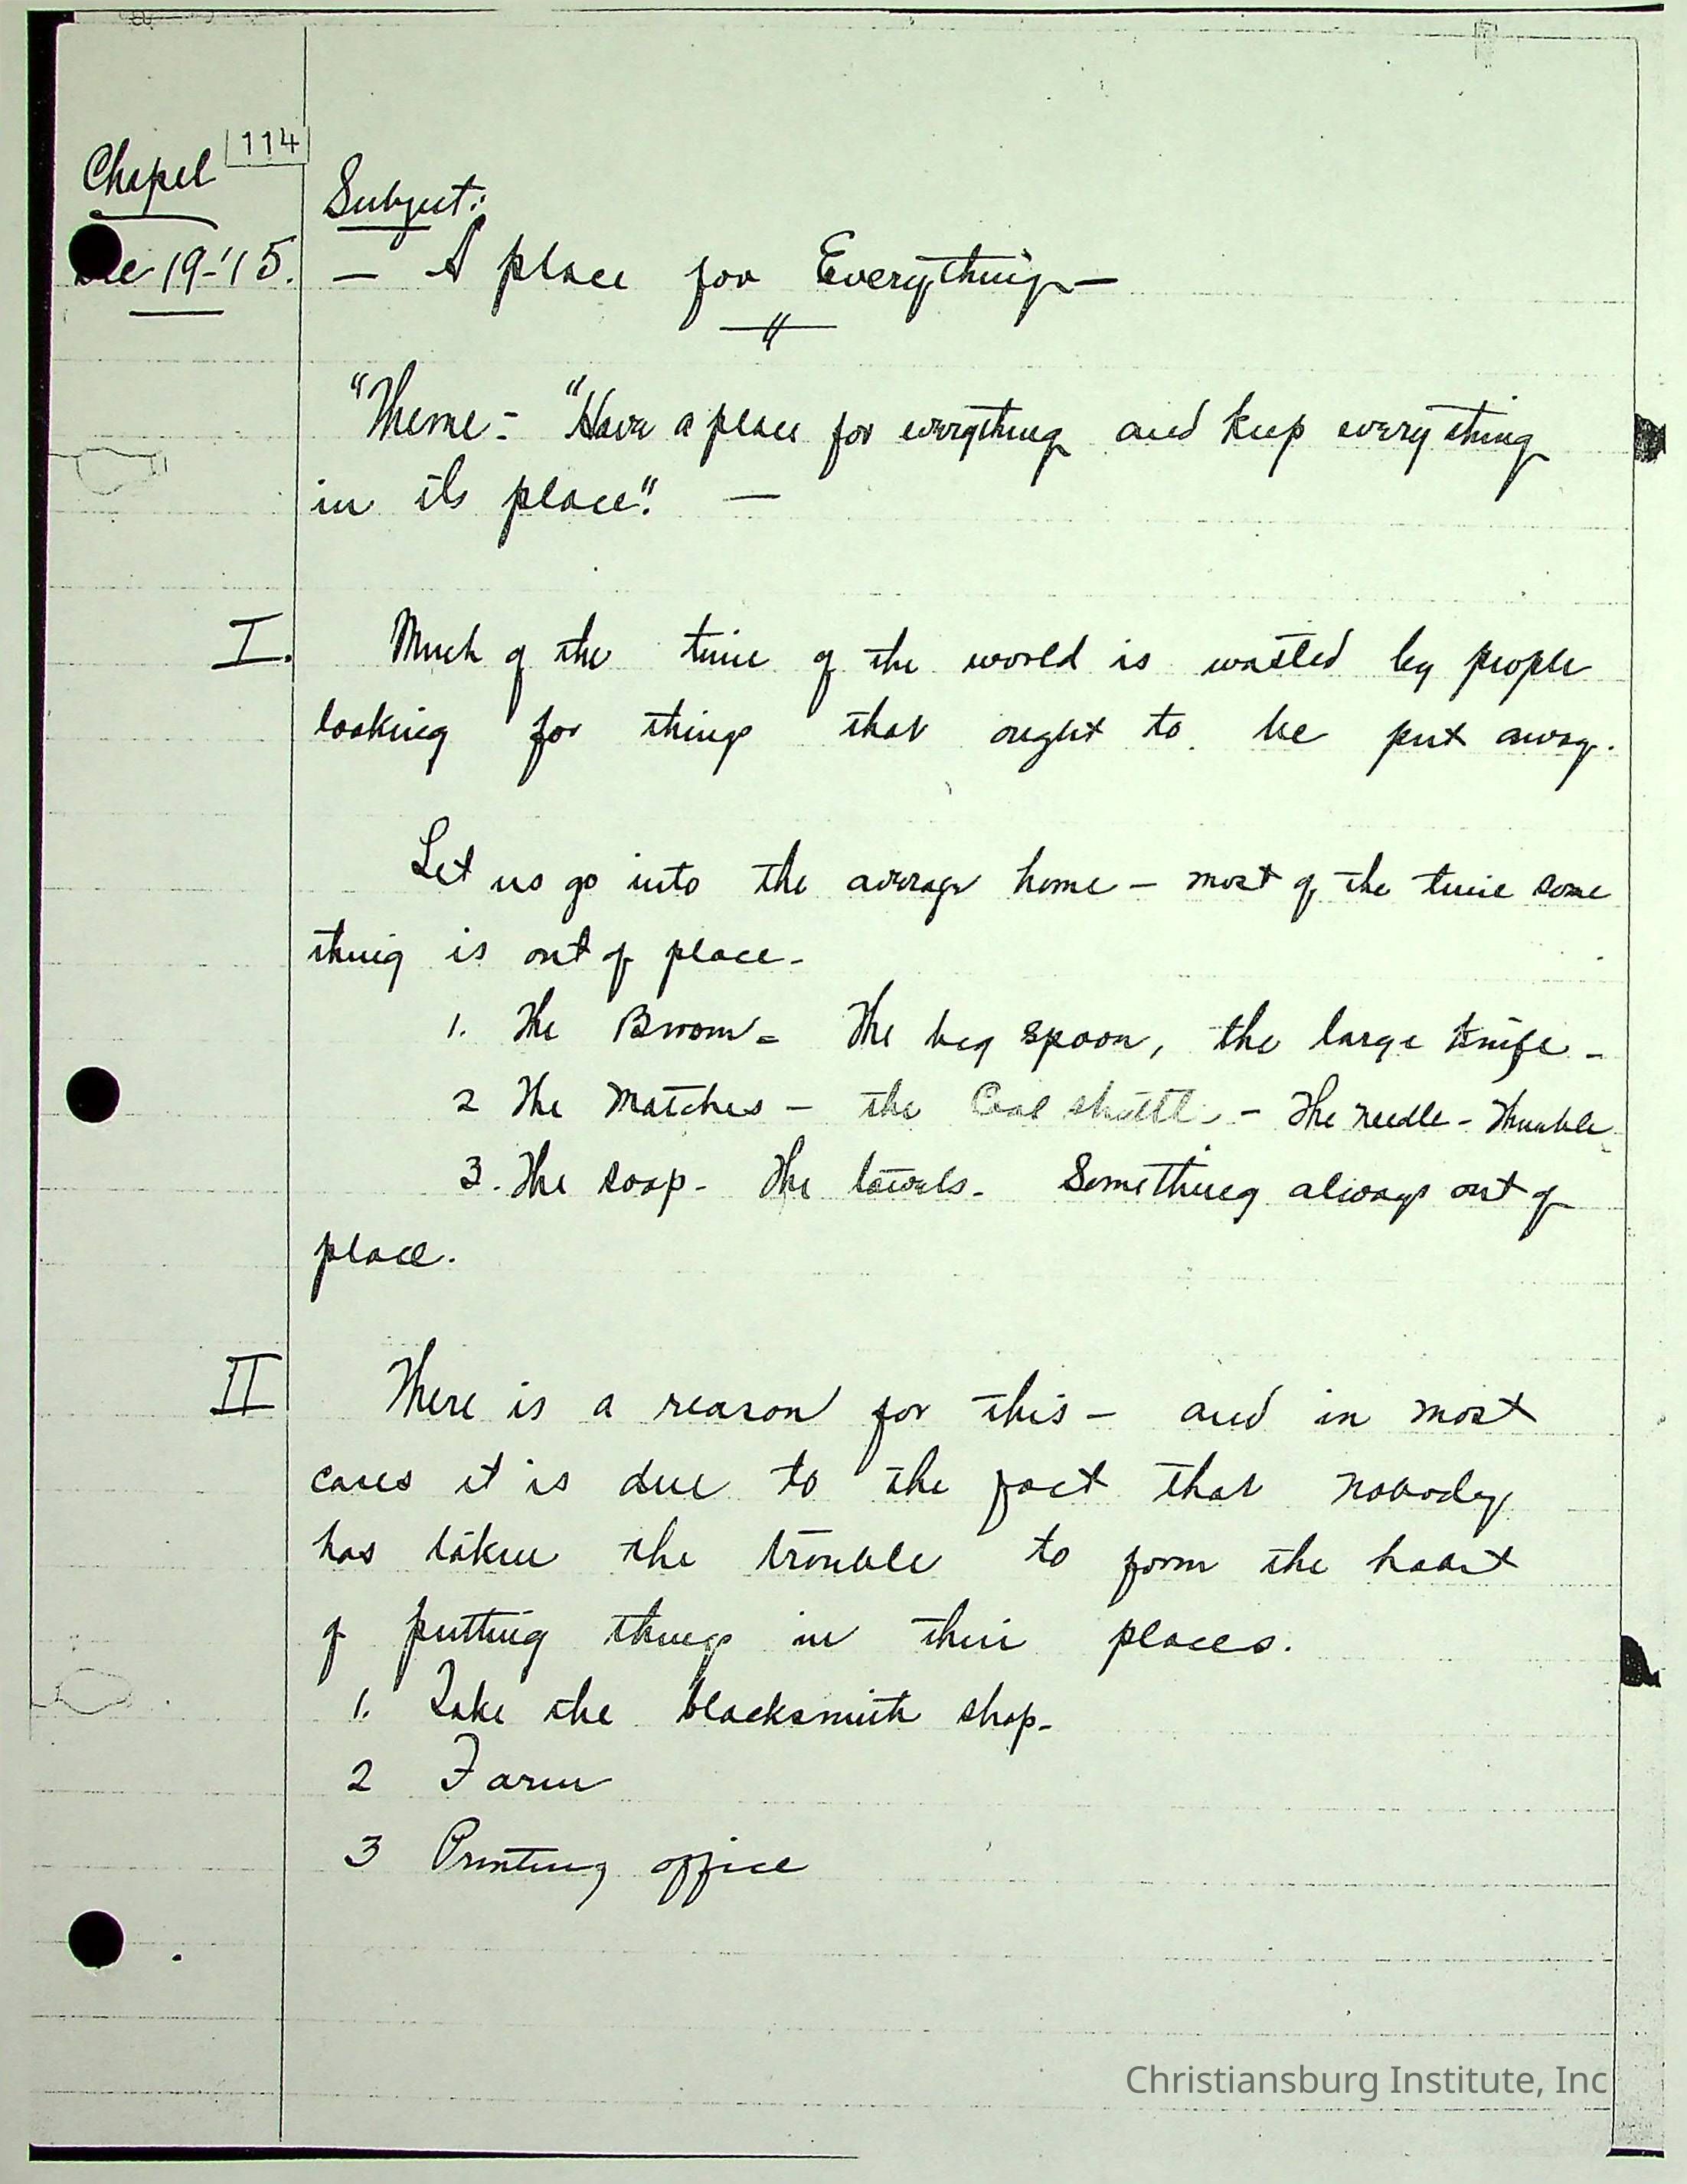 Chapel 114
Dec 19-'15.
Subject:
— A place for Everything —
"Theme:- "Have a place for everything and keep everything
in its place". —
I. Much of the time of the world is wasted by people
looking for things that ought to be put away.
Let us go into the average home - most of the time some
thing is out of place -
1. The Broom - The big spoon, the large knife -
2 The Matches - the Coal shuttle - The needle - Thimble
3. The soap - The towels - Something always out of
place.
II There is a reason for this - and in most
cases it is due to the fact that nobody
has taken the trouble to form the habit
of putting things in their places.
1. Take the blacksmith shop -
2 Farm
3 Printing office
Christiansburg Institute, Inc